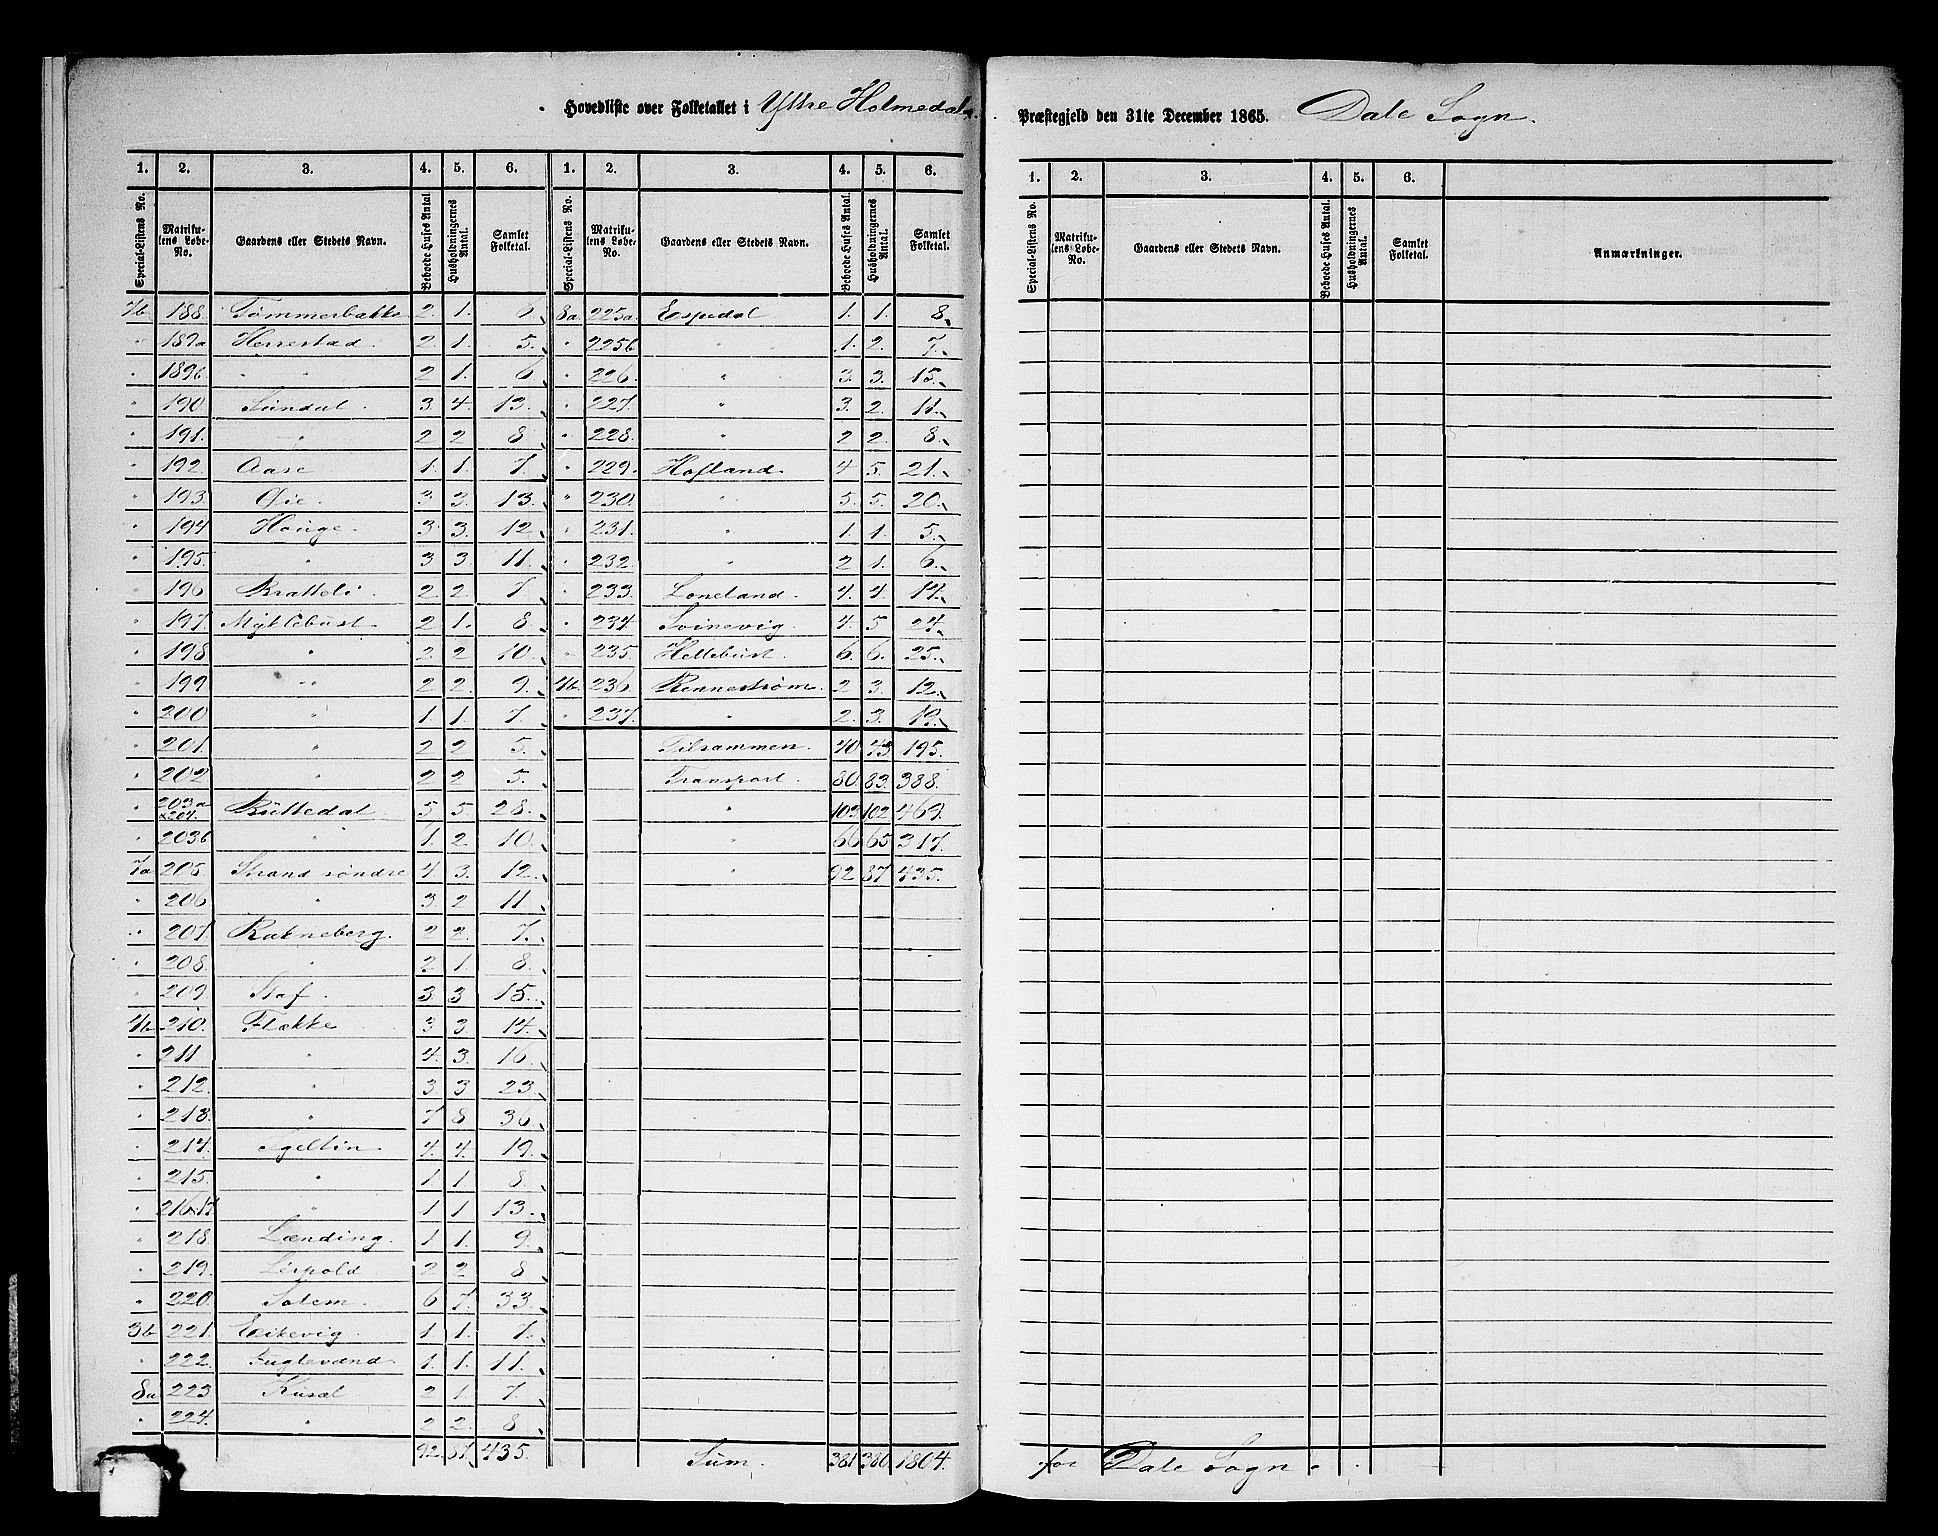 Hovedliste over Folketallet i Yttre Holmedals Præstegjeld den 31te December 1865. Dale Sogn.
1. 2. 3. 4. 5. 6. 1. 2. 3. 4. 5. 6.
Special-Listens No. Matrikulens Løbe-No. Gaardens eller Stedets Navn. Beboede Huses Antal. Husholdningernes Antal. Samlet Folketal. Special-Listens No. Matrikulens Løbe-No. Gaardens eller Stedets Navn. Beboede Huses Antal. Husholdningernes Antal. Samlet Folketal.
188. Tømmerbakke 2. 1. 6. 8a 225a. Espedal 1. 1. 8.
" 189a Herrestad 2. 1. 5. " 225b " 1. 2. 7.
" 189b. " " 2 1. 6 " 226. " 3. 3. 15.
" 190 Sündal. 3. 4. 13. " 227. " 3. 2. 11.
" 191. " 2 2 8. " 228. " 2 2. 8.
" 192. Aase 1. 1. 7. " 229. Hofland. 4 5. 21.
" 193. Øie. 3 3. 13. " 230. " 5. 5. 20.
" 194 Houge. 3. 3. 12. " 231. " 1. 1. 5.
" 195. " 3 3 11. " 232. " 2 1. 6.
" 196 Bratteli. 2 2 7. " 233. Loneland. 4. 4. 14.
" 197. Myklebust. 2 1. 8. " 234. Svinevig. 4. 5 24.
" 198 " 2. 2 10. " 235. Hellebust. 6. 6. 25.
" 199 " 2 2. 9. 4b. 236. Rennestrøm. 2 3. 12.
" 200 " 1. 1. 7. " 237. " 2. 3. 19.
" 201. " 2 2 5. Tilsammen. 40 43 195.
" 202 " 2 2 5. Transport. 80. 83. 388.
" 203a & 204. Büttedal. 5 5. 28. " 103. 102 469.
" 203b " 1. 2 10. " 66 65 317.
7a 205 Strand søndre 4 3. 12. " 92 87 435.
" 206 " 3 2 11.
" 207. Rakneberg. 2 2. 7.
" 208. " 2 1 8.
" 209 Staf. 3. 3 15.
4b 210. Flekke 3 3. 14.
" 211 " 4. 3. 16.
" 212. " 3 3 23.
" 213. " 7 8 36.
" 214. 4. 4. 19.
" 215. " 1 1. 8.
" 216&17. " 1 1 13.
" 218. Lænding. 1 1. 9.
" 219. Leirpold 2 2 8.
" 220. Solem. 6 7. 33.
3b 221. Eikevig. 1 1. 7.
" 222. Fuglevænd. 1. 1. 11.
8a 223 2 1. 7.
" 224. " 2 2. 8.
92. 87. 435. Sum. 381 380 1804.
1. 2. 3. 4. 5. 6.
Special-Listens No. Matrikulens Løbe-No. Gaardens eller Stedets Navn. Beboede Huses Antal. Husholdningernes Antal. Samlet Folketal. Anmærkninger.
for Dale Sogn.